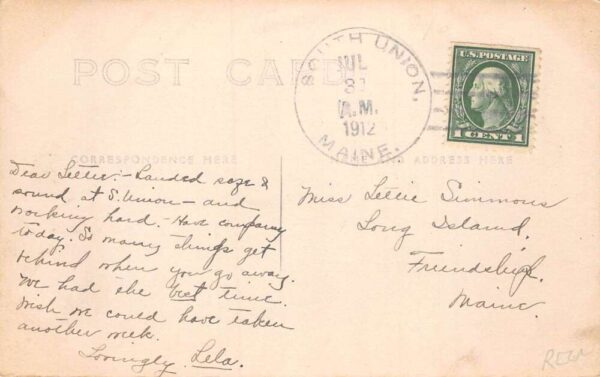 POST CARD
SOUTH UNION,
JUL
31
A.M.
1912
MAINE.
U.S. POSTAGE
1 CENT 1
CORRESPONDENCE HERE
ADDRESS HERE
Dear Lettie:- Landed safe &
sound at S. Union - and
working hard. - Have company
today. So many things get
behind when you go away.
We had the best time.
Wish we could have taken
another week.
Lovingly Lela.
Miss Lettie Simmons
Long Island,
Friendship.
Maine.